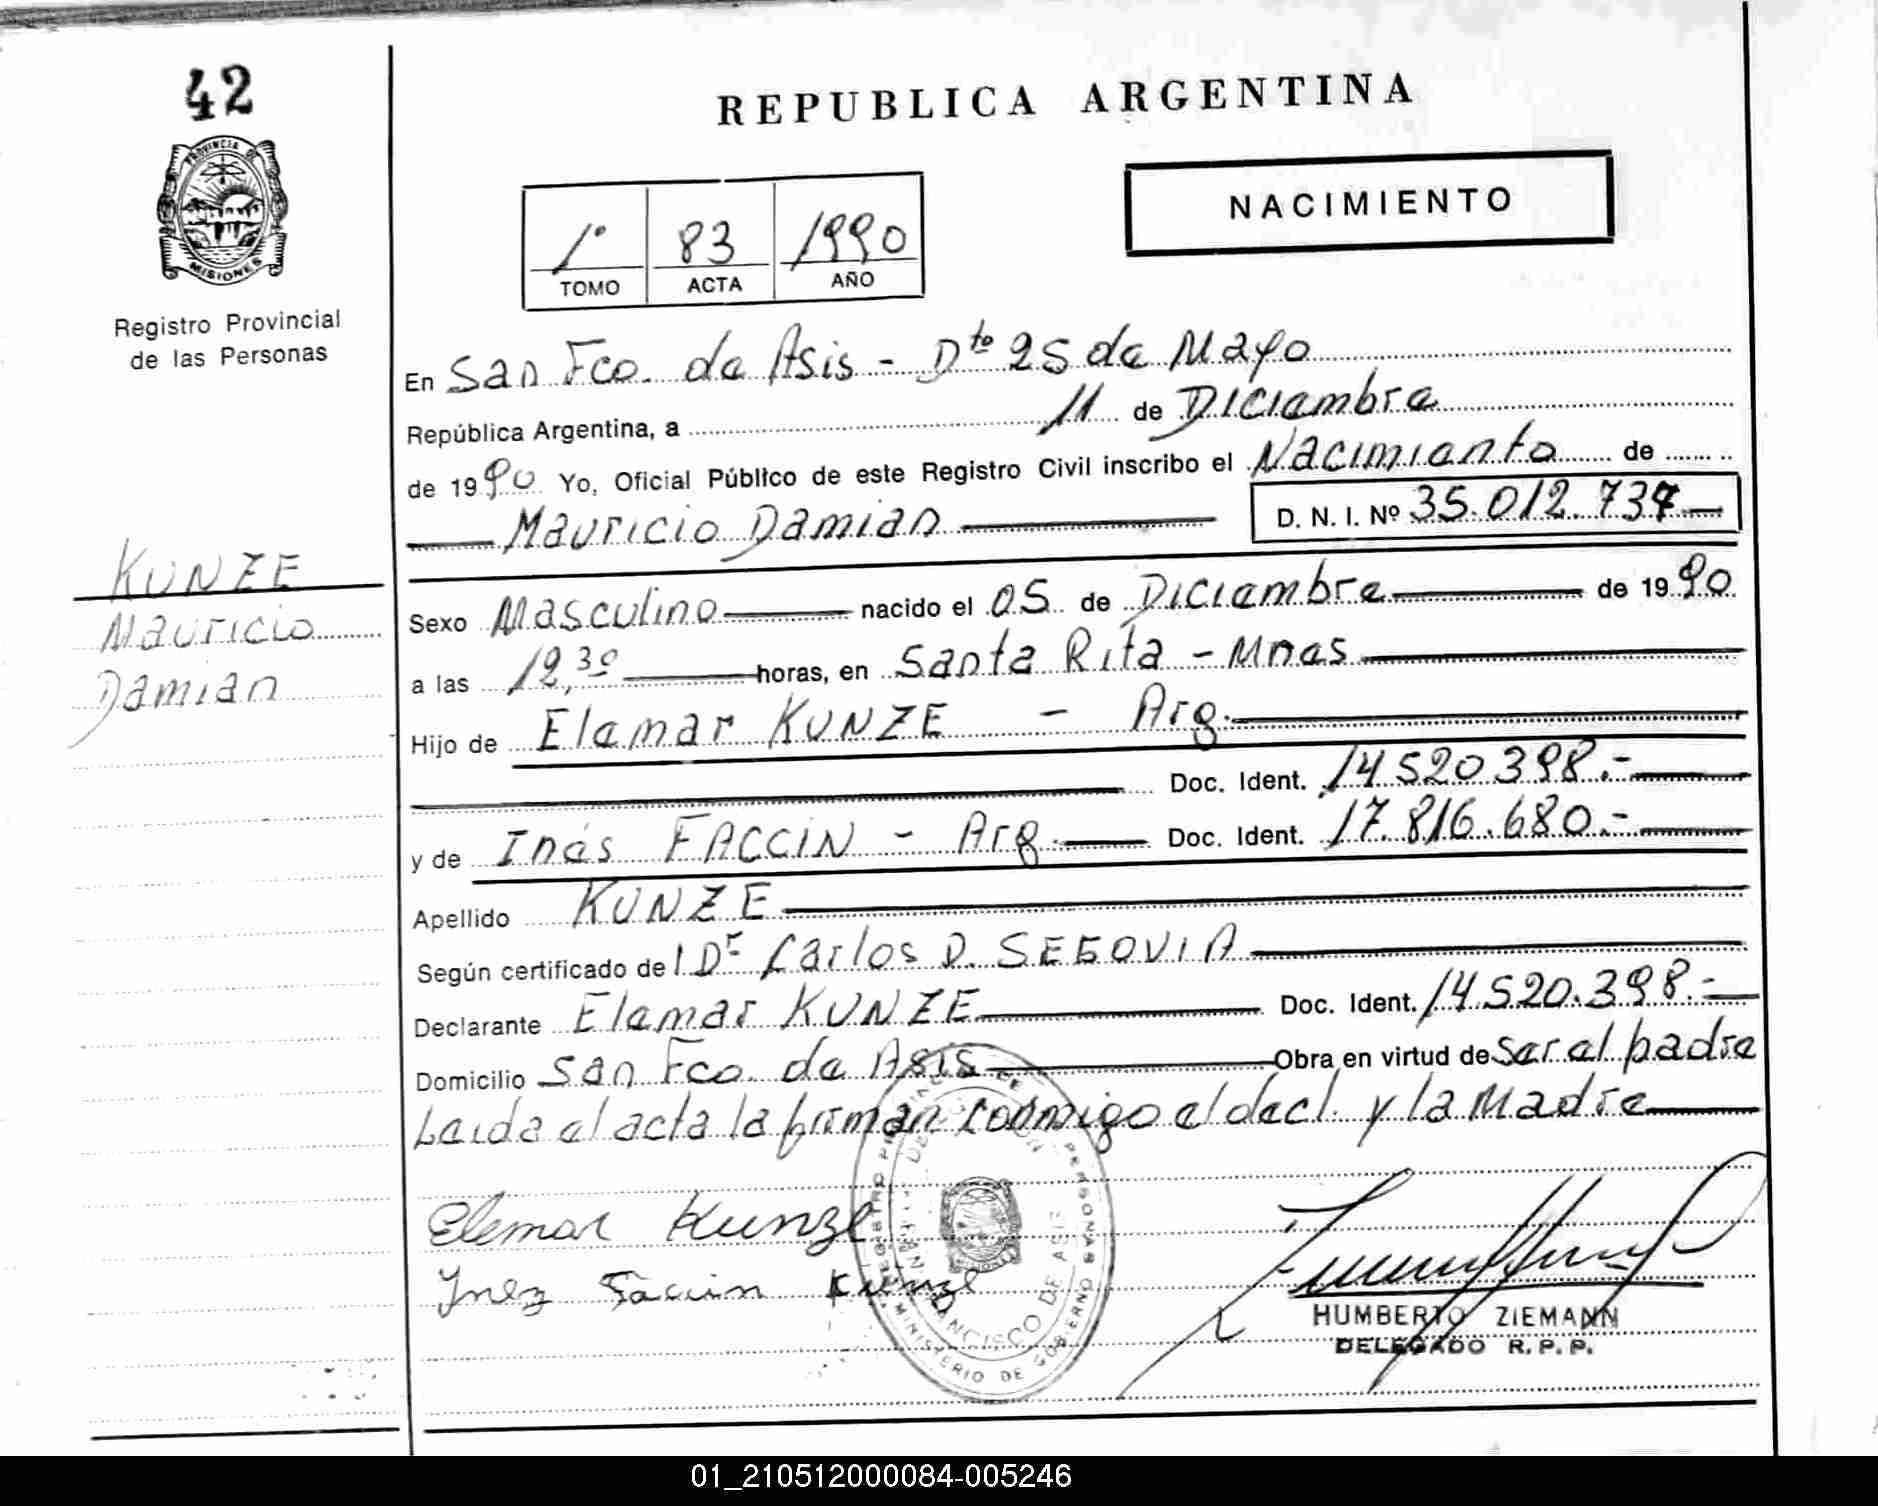 42
PROVINCIA DE
MISIONES
Registro Provincial
de las Personas
REPUBLICA ARGENTINA
NACIMIENTO
1° 83 1990
TOMO ACTA AÑO
En San Fco. de Asis - Dto 25 de Mayo
República Argentina, a 11 de Diciembre
de 1990 Yo, Oficial Público de este Registro Civil inscribo el Nacimiento de
Mauricio Damian D. N. I. Nº 35.012.737
KUNZE
Mauricio
Damian
Sexo Masculino nacido el 05 de Diciembre de 1990
a las 12,30 horas, en Santa Rita - Mnes
Hijo de Elemar KUNZE - Arg.
Doc. Ident. 14520398.-
y de Inés FACCIN - Arg. Doc. Ident. 17.816.680.-
Apellido KUNZE
Según certificado del Dr Carlos D. SEGOVIA
Declarante Elemar KUNZE Doc. Ident. 14.520.398.-
Domicilio San Fco. de Asis Obra en virtud de ser el padre
Leida el acta la firman conmigo el decl. y la Madre
Elemar Kunze
Ynez Faccin Kunze
REGISTRO DE PERSONAS
MINISTERIO DE GOBIERNO
FRANCISCO DE ASIS
HUMBERTO ZIEMANN
DELEGADO R.P.P.
01_210512000084-005246